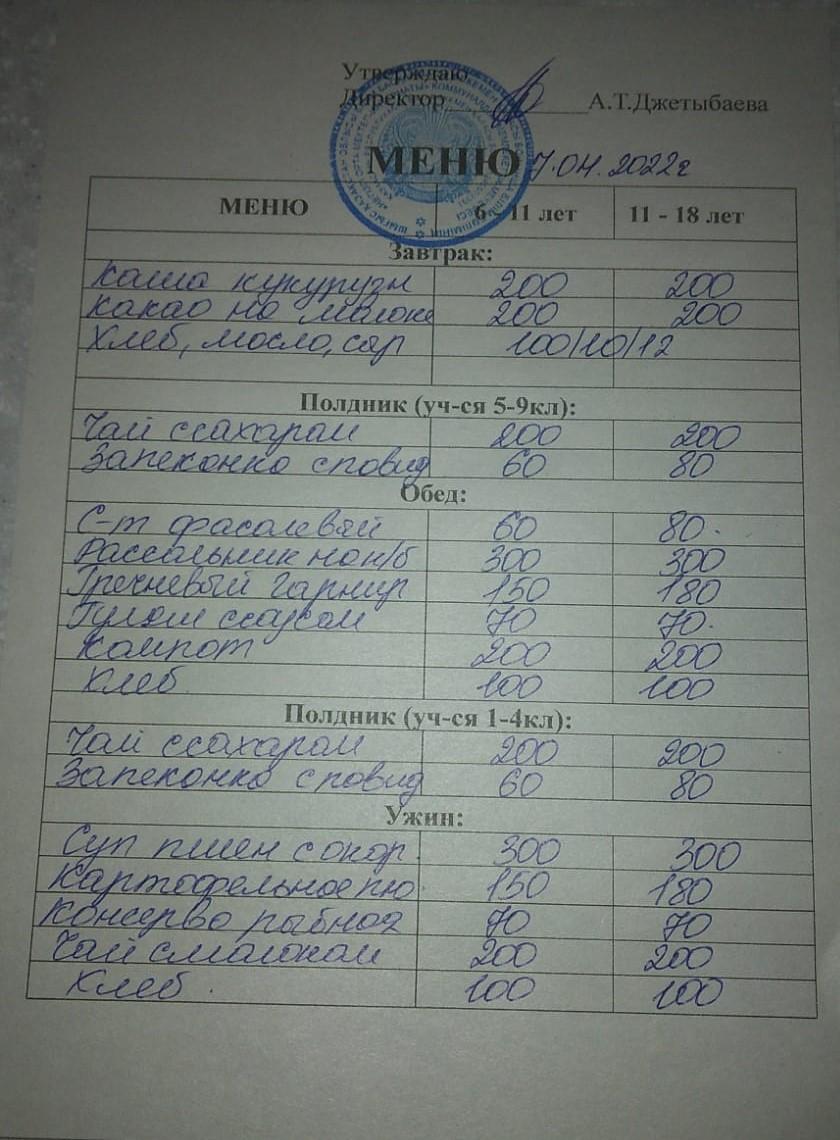 Утверждаю
Директор А.Т.Джетыбаева
МЕНЮ 7.04.2022г
МЕНЮ 6 - 11 лет 11 - 18 лет
Завтрак:
Каша кукурузн 200 200
Какао на молоке 200 200
Хлеб, масло, сар 100/10/12
Полдник (уч-ся 5-9кл):
Чай ссахарам 200 200
Запеконка сповид 60 80
Обед:
С-т фасолевый 60 80.
Рассольник нак/б 300 300
Гречневый гарнир 150 180
Гуляш ссоусом 70 70.
Компот 200 200
Хлеб 100 100
Полдник (уч-ся 1-4кл):
Чай ссахарам 200 200
Запеконка сповид 60 80
Ужин:
Суп пшен с окор. 300 300
Картофельное пю. 150 180
Консерва рыбная 70 70
Чай смолоком 200 200
Хлеб. 100 100